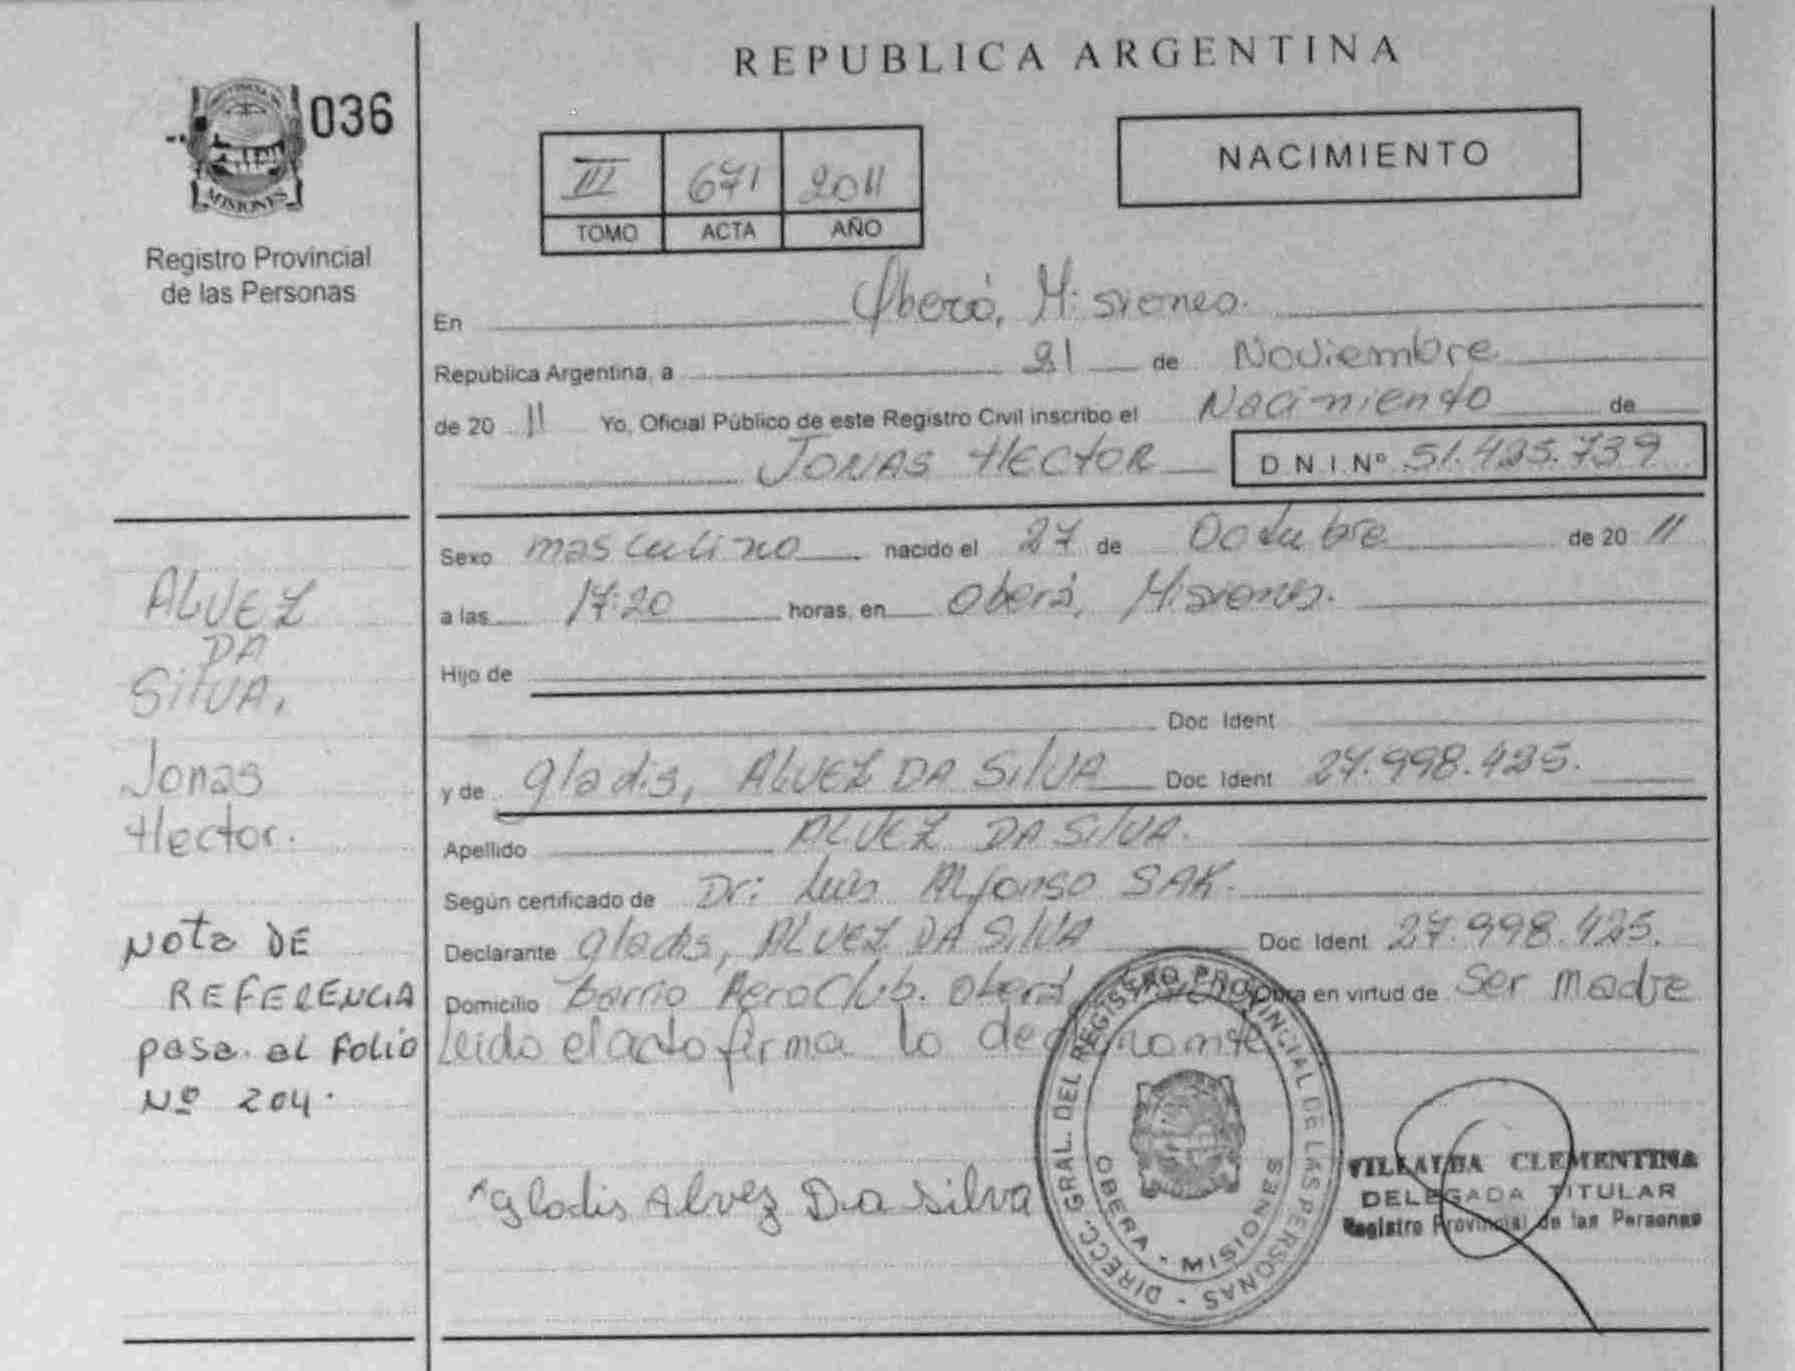 REPUBLICA ARGENTINA
036
MISIONES
Registro Provincial
de las Personas
III 671 2011
TOMO ACTA AÑO
NACIMIENTO
En Oberá, Misiones.
Republica Argentina, a 21 de Noviembre
de 20 11 Yo, Oficial Público de este Registro Civil inscribo el Nacimiento de
JONAS HECTOR D N I Nº 51.425.739
Sexo masculino nacido el 27 de Octubre de 20 11
a las 17:20 horas, en Oberá, Misiones.
Hijo de
Doc Ident
y de gladis, ALVEZ DA SilVA Doc Ident 27.998.425.
Apellido ALVEZ DA SilVA.
Según certificado de Dr: Luis Alfonso SAK.
Declarante gladis, ALVEZ DA SilVA Doc Ident 27.998.425.
Domicilio barrio AeroClub. Oberá, Obra en virtud de Ser Madre
Leido el acto firma lo declarante
ALVEZ
DA
SilVA,
Jonas
Hector.
Nota DE
REFERENCIA
pasa al Folio
Nº 204.
Gladis Alvez Da Silva
DIRECC. GRAL. DEL REGISTRO PROVINCIAL DE LAS PERSONAS
OBERA - MISIONES
VILLALBA CLEMENTINA
DELEGADA TITULAR
Registro Provincial de las Personas